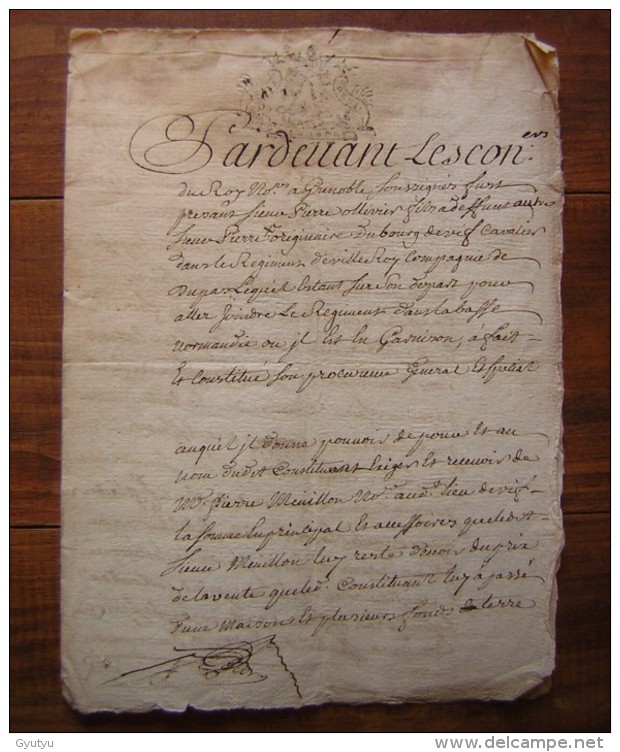 Pardevant Les Con.ers
du Roy No.res a Grenoble soussignés fust
present sieur Pierre ollivier fils a deffunt autre
sieur Pierre originaire du bourg de vif Cavalier
dans le Regiment de ville Roy Compagnie de
Dupas Lequel Estant sur son depart pour
aller joindre Le Regiment dans la basse
normandie ou jl Est En Garnison, à fait
Et Constitué son procureur General Et special
auquel jl donne pouvoir de pour Et au
nom dudit Constituant Exiger Et recevoir de
M.e Pierre Meuillon No.re aud.t lieu de vif
La somme En principal Et accessoires que led.t
sieur Meuillon luy reste devoir du prix
de la vente que led. Constituant luy à passé
d'une Maison Et plusieurs fonds de terre
Gyutyu
www.delcampe.net